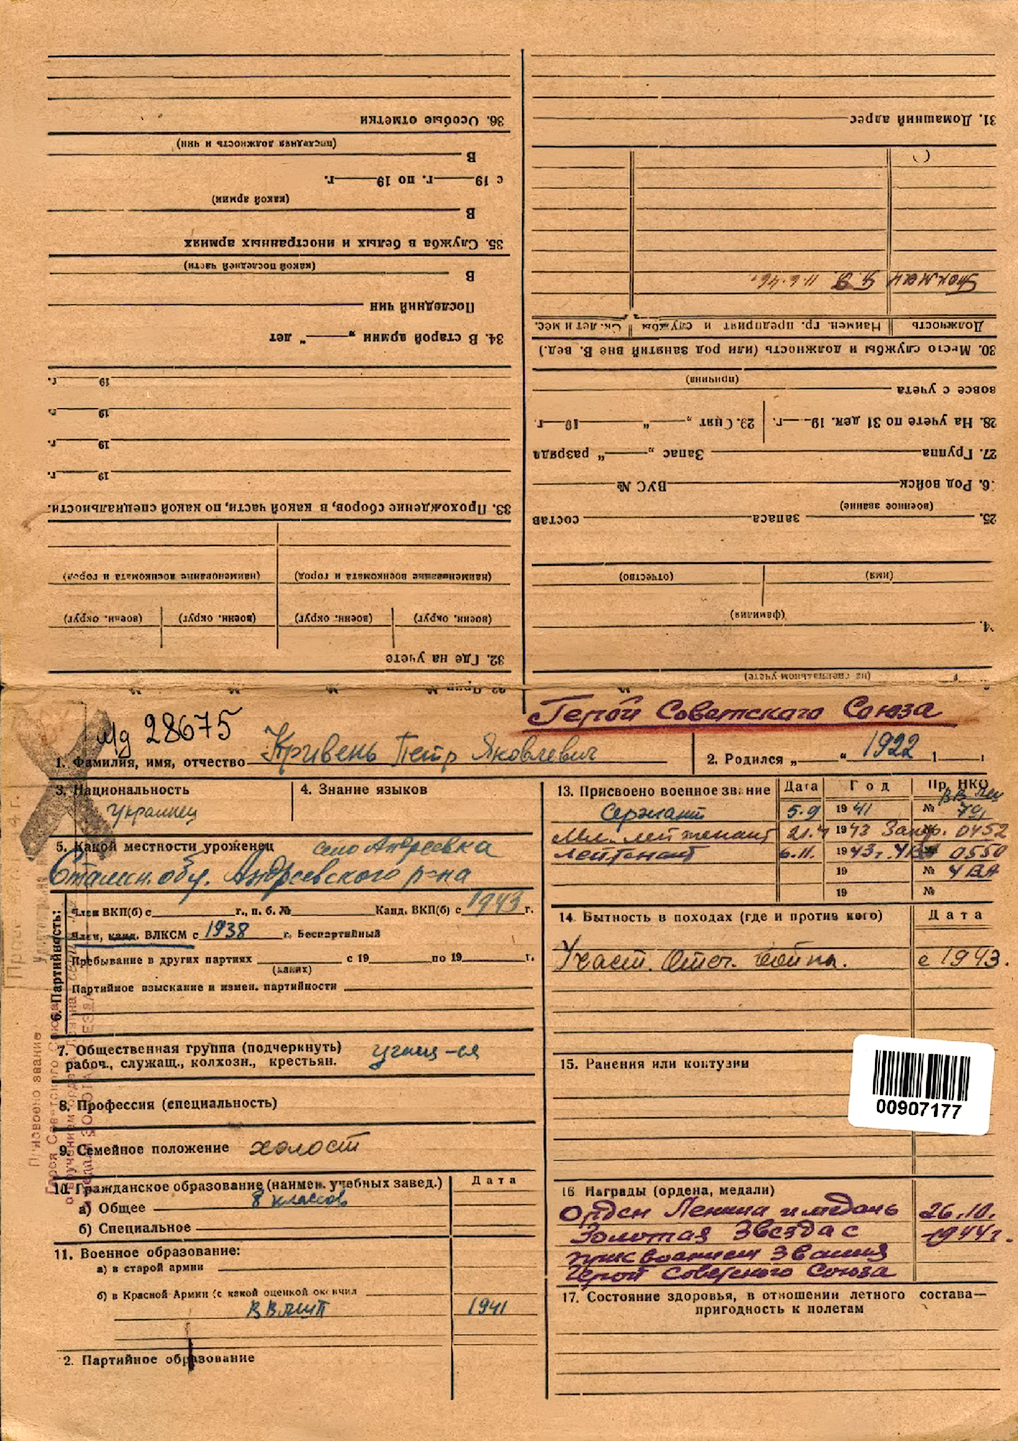 36. Особые отметки
(последняя должность и чин)
В
с 19 г. по 19 г.
(какой армии)
В
35. Служба в белых и иностранных армиях
(какой последней части)
В
Последний чин
34. В старой армии „ “ лет
19 г.
19 г.
19 г.
19 г.
33. Прохождение сборов, в какой части, по какой специальности.
(наименование военкомата и город) (наименование военкомата и город)
(воен. округ) (воен. округ) (воен. округ) (воен. округ)
32. Где на учете
31. Домашний адрес
11.6.46г.
Должность Наимен. гр. предприят и службы Ск. лет и мес.
30. Место службы и должность (или род занятий вне В. вед.)
(причина)
вовсе с учета
28. На учете по 31 дек. 19 г. 29. Снят „ “ 19 г.
27. Группа Запас „ “ разряда
6. Род войск ВУС №
(военное звание)
25. запаса состав
(имя) (отчество)
(фамилия)
4.
(на специальном учете)
Герой Советского Союза
Мд 28675
1. Фамилия, имя, отчество Кривень Петр Яковлевич
2. Родился „ “ 1922
3. Национальность
Украинец
4. Знание языков
5. Какой местности уроженец село Андреевка
Сталин. обл. Андреевского р-на
6. Партийность:
Член ВКП(б) с г., п. б. № Канд. ВКП(б) с 1943 г.
Член, канд. ВЛКСМ с 1938 г. Беспартийный
Пребывание в других партиях с 19 по 19 г.
(каких)
Партийное взыскание и измен. партийности
7. Общественная группа (подчеркнуть) учащ-ся
рабоч., служащ., колхозн., крестьян.
8. Профессия (специальность)
9. Семейное положение холост
10. Гражданское образование (наимен. учебных завед.) Дата
а) Общее 8 классов
б) Специальное
11. Военное образование:
а) в старой армии
б) в Красной Армии (с какой оценкой окончил
1941
2. Партийное образование
13. Присвоено военное звание Дата Год Пр. НКО
Сержант 5.9 1941 №
Мл. лейтенант 21.4 1943 0452
Лейтенант 6.11. 1943г. 0550
19 № 4 ВА
19 №
14. Бытность в походах (где и против кого) Дата
Участ. Отеч. войны. с 1943.
15. Ранения или контузии
00907177
16 Награды (ордена, медали)
Орден Ленина и медаль 26.10.
Золотая Звезда с 1944г.
присвоением звания
Герой Советского Союза
17. Состояние здоровья, в отношении летного состава—
пригодность к полетам
Присвоено звание
Героя Советского Союза